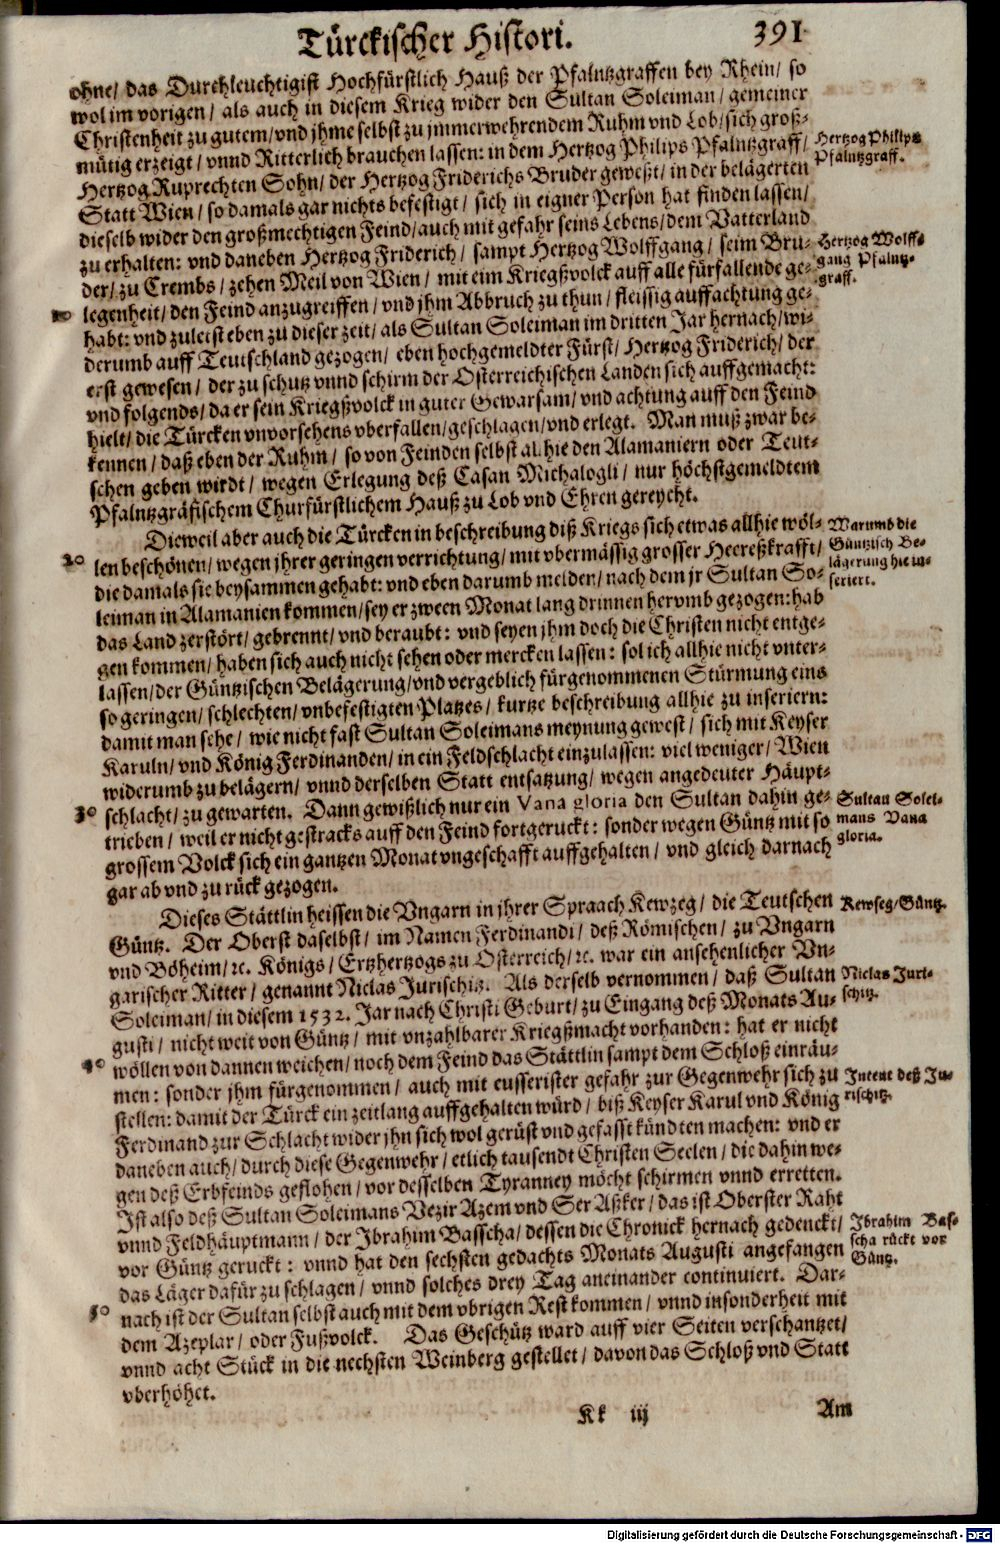 Türckischer Histori. 391
ohne/ das Durchleuchtigist Hochfürstlich Hauß der Pfalntzgraffen bey Rhein/ so
wol im vorigen/ als auch in diesem Krieg wider den Sultan Soleiman/ gemeiner
Christenheit zu gutem/ vnd jhme selbst zu jmmerwehrendem Ruhm vnd Lob/ sich groß-
mütig erzeigt/ vnnd Ritterlich brauchen lassen: in dem Hertzog Philips Pfalntzgraff/
Hertzog Philips
Pfalntzgraff.
Hertzog Ruprechten Sohn/ der Hertzog Friderichs Bruder geweßt/ in der belägerten
Statt Wien/ so damals gar nichts befestigt/ sich in eigner Person hat finden lassen/
dieselb wider den großmechtigen Feind/ auch mit gefahr seins Lebens/ dem Vatterland
zu erhalten: vnd daneben Hertzog Friderich/ sampt Hertzog Wolffgang/ seim Bru-
Hertzog Wolff-
gang Pfalntz-
graff.
der/ zu Crembs/ zehen Meil von Wien/ mit eim Kriegßvolck auff alle fürfallende ge-
10 legenheit/ den Feind anzugreiffen/ vnd jhm Abbruch zu thun/ fleissig auffachtung ge-
habt: vnd zuletst eben zu dieser zeit/ als Sultan Soleiman im dritten Jar hernach/ wi-
derumb auff Teutschland gezogen/ eben hochgemeldter Fürst/ Hertzog Friderich/ der
erst gewesen/ der zu schutz vnnd schirm der Osterreichischen Landen sich auffgemacht:
vnd folgends/ da er sein Kriegßvolck in guter Gewarsam/ vnd achtung auff den Feind
hielt/ die Türcken vnvorsehens vberfallen/ geschlagen/ vnd erlegt. Man muß zwar be-
kennen/ daß eben der Ruhm/ so von Feinden selbst alhie den Alamaniern oder Teut-
schen geben wirdt/ wegen Erlegung deß Casan Michalogli/ nur höchstgemeldtem
Pfalntzgräfischem Churfürstlichem Hauß zu Lob vnd Ehren gereycht.
Dieweil aber auch die Türcken in beschreibung diß Kriegs sich etwas allhie wöl-
Warumb die
Güntzisch Be-
lägerung hie in-
seriert.
20 len beschönen/ wegen jhrer geringen verrichtung/ mit vbermässig grosser Heereßkrafft/
die damals sie beysammen gehabt: vnd eben darumb melden/ nach dem jr Sultan So-
leiman in Alamanien kommen/ sey er zween Monat lang drinnen hervmb gezogen: hab
das Land zerstört/ gebrennt/ vnd beraubt: vnd seyen jhm doch die Christen nicht entge-
gen kommen/ haben sich auch nicht sehen oder mercken lassen: sol ich allhie nicht vnter-
lassen/ der Güntzischen Belägerung/ vnd vergeblich fürgenommenen Stürmung eins
so geringen/ schlechten/ vnbefestigten Platzes/ kurtze beschreibung allhie zu inseriern:
damit man sehe/ wie nicht fast Sultan Soleimans meynung gewest/ sich mit Keyser
Karuln/ vnd König Ferdinanden/ in ein Feldschlacht einzulassen: viel weniger/ Wien
widerumb zu belägern/ vnnd derselben Statt entsatzung/ wegen angedeuter Häupt-
30 schlacht/ zu gewarten. Dann gewißlich nur ein Vana gloria den Sultan dahin ge-
Sultan Solei-
mans Vana
gloria.
trieben/ weil er nicht gestracks auff den Feind fortgeruckt: sonder wegen Güntz mit so
grossem Volck sich ein gantzen Monat vngeschafft auffgehalten/ vnd gleich darnach
gar ab vnd zu rück gezogen.
Dieses Stättlin heissen die Vngarn in jhrer Spraach Kewzeg/ die Teutschen
Kewseg/ Güntz.
Güntz. Der Oberst daselbst/ im Namen Ferdinandi/ deß Römischen/ zu Vngarn
vnd Böheim/ ꝛc. Königs/ Ertzhertzogs zu Osterreich/ ꝛc. war ein ansehenlicher Vn-
garischer Ritter/ genannt Niclas Jurischitz. Als derselb vernommen/ daß Sultan
Niclas Juri-
schitz.
Soleiman/ in diesem 1532. Jar nach Christi Geburt/ zu Eingang deß Monats Au-
gusti/ nicht weit von Güntz/ mit vnzahlbarer Kriegßmacht vorhanden: hat er nicht
40 wöllen von dannen weichen/ noch dem Feind das Stättlin sampt dem Schloß einräu-
men: sonder jhm fürgenommen/ auch mit eusserister gefahr zur Gegenwehr sich zu
Intent deß Ju-
rischitz.
stellen: damit der Türck ein zeitlang auffgehalten würd/ biß Keyser Karul vnd König
Ferdinand zur Schlacht wider jhn sich wol gerüst vnd gefasst kündten machen: vnd er
daneben auch/ durch diese Gegenwehr/ etlich tausendt Christen Seelen/ die dahin we-
gen deß Erbfeinds geflohen/ vor desselben Tyranney möcht schirmen vnnd erretten.
Ist also deß Sultan Soleimans Vezir Azem vnd Ser Aßker/ das ist Oberster Raht
vnnd Feldhäuptmann/ der Ibrahim Basscha/ dessen die Chronick hernach gedenckt/
Ibrahim Bas-
scha rückt vor
Güntz.
vor Güntz geruckt: vnnd hat den sechsten gedachts Monats Augusti angefangen
das Läger dafür zu schlagen/ vnnd solches drey Tag aneinander continuiert. Dar-
50 nach ist der Sultan selbst auch mit dem vbrigen Rest kommen/ vnnd insonderheit mit
dem Azeplar/ oder Fußvolck. Das Geschütz ward auff vier Seiten verschantzet/
vnnd acht Stück in die nechsten Weinberg gestellet/ davon das Schloß vnd Statt
vberhöhet.
Kk iij Am
Digitalisierung gefördert durch die Deutsche Forschungsgemeinschaft - DFG